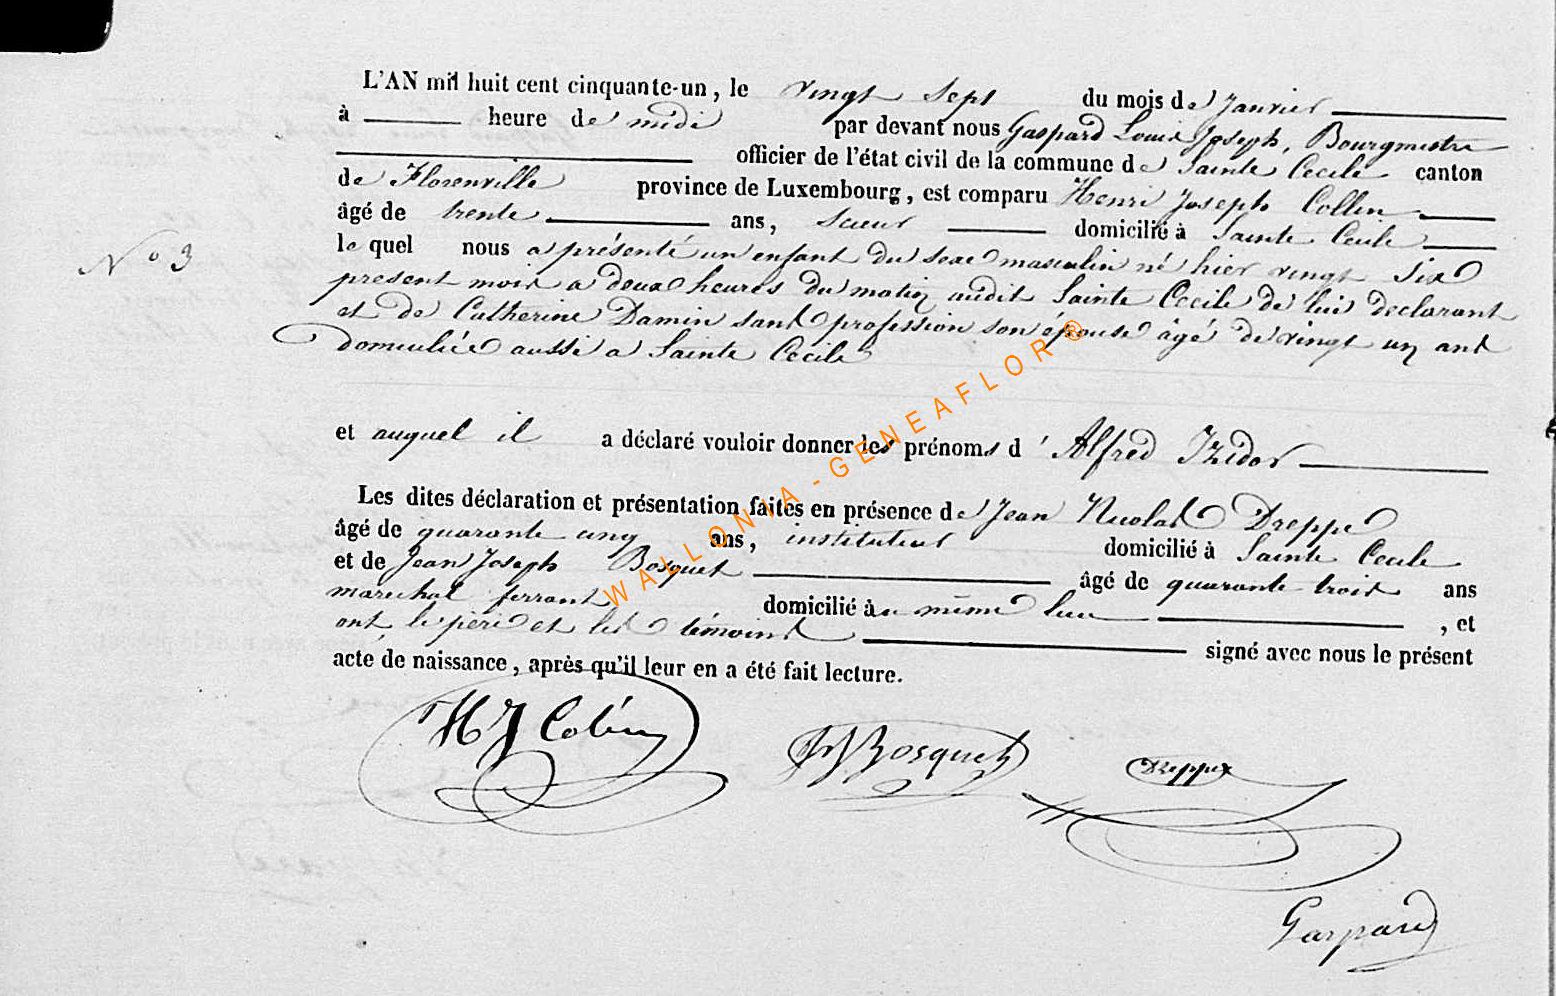 L'AN mil huit cent cinquante-un, le vingt sept du mois de Janvier
à heure de midi par devant nous Gaspard Louis Joseph, Bourgmestre
officier de l'état civil de la commune de Sainte Cecile canton
de Florenville province de Luxembourg, est comparu Henri Joseph Collin
âgé de trente ans, domicilié à Sainte Cecile
N° 3
le quel nous a présenté un enfant du sexe masculin né hier vingt six
present mois a deux heures du matin audit Sainte Cecile de lui declarant
et de Catherine Damin sans profession son épouse âgé de vingt un ans
domiciliée aussi a Sainte Cecile
et auquel il a déclaré vouloir donner les prénoms d'Alfred Izidor
Les dites déclaration et présentation faites en présence de Jean Nicolas Dreppe
âgé de quarante cinq ans, instituteur domicilié à Sainte Cecile
et de Jean Joseph Bosquet âgé de quarante trois ans
marechal ferrant domicilié au même lieu , et
ont le père et les témoins signé avec nous le présent
acte de naissance, après qu'il leur en a été fait lecture.
H J Colin Bosquet Dreppe
Gaspard
WALLONIA-GENEAFLOR®